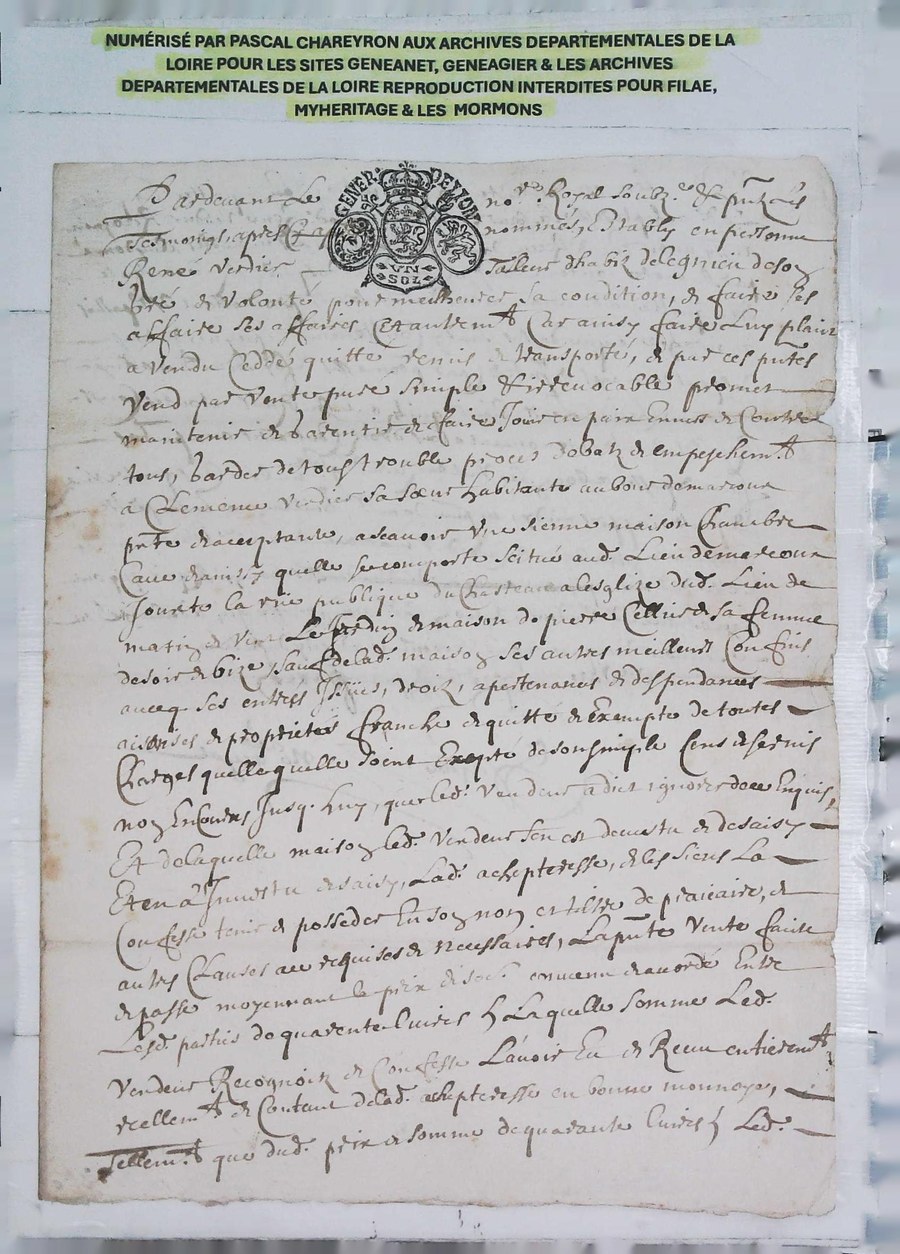 NUMÉRISÉ PAR PASCAL CHAREYRON AUX ARCHIVES DEPARTEMENTALES DE LA
LOIRE POUR LES SITES GENEANET, GENEAGIER & LES ARCHIVES
DEPARTEMENTALES DE LA LOIRE REPRODUCTION INTERDITES POUR FILAE,
MYHERITAGE & LES MORMONS
GENER. DE LION
UN
SOL
Pardevant Le no.re Royal soubz.né & pnt Les
Tesmoings apres nommés, Establÿ en personne
René Verdier Tailleur dhabiz de
gré & volonté pour meilheurer sa condition, & faire ses
affaire ses affaires Et autrem.t Car ainsy faire Luy plaict
a Vendu Ceddé quitte remis & transporté, & par ces pntes
Vend par Vente pure simple & irrevocable promet
maintenir & garentir & faire Jouir en paix Envers & Contre
tous, garder de tous trouble proces dobatz & empeschem.t
à Clemence Verdier sa sœur habitante au bourg de marcoux
pnte & acceptante, a scavoir Une sienne maison Chambre
Cave & ainsy quelle se comporte scitué aud. Lieu de marcoux
Jouxte la rüe publique du Chasteau a lesglize dud. Lieu de
matin & Le Jardin & maison de pierre & sa femme
de soir & bize, sauf de lad. maison ses autres meilleurs Confins
avecq ses entrées Issües, droiz, apertenances & despendances
aisances & proprietés franche & quitte & Exempte de toutes
Charges quelle quelle soient Exepté de son simple Cens & servis
non Encourus Jusq. huy, que led. Vendeur a dict ignorer de ce Enquis,
Et de laquelle maison led. Vendeur sen est devestu & desaisy
Et en a Investu & saisy, Lad. achepteresse, & les siens La
Confesse tenir & posseder En son nom et tiltre de precaire, &
autres Clauses a ce requises & necessaires, La pnte Vente faicte
& passe moyennant le prix & so.e convenu & accordé Entre
Lesd. parties de quarente Livres Laquelle somme Led.
Vendeur Recognoist & Confesse Lavoir Eu & Receu entierem.t
reellem.t & Contant de lad. achepteresse en bonne monnoye,
Tellem.t que dud. prix & somme de quarante Livres Led.